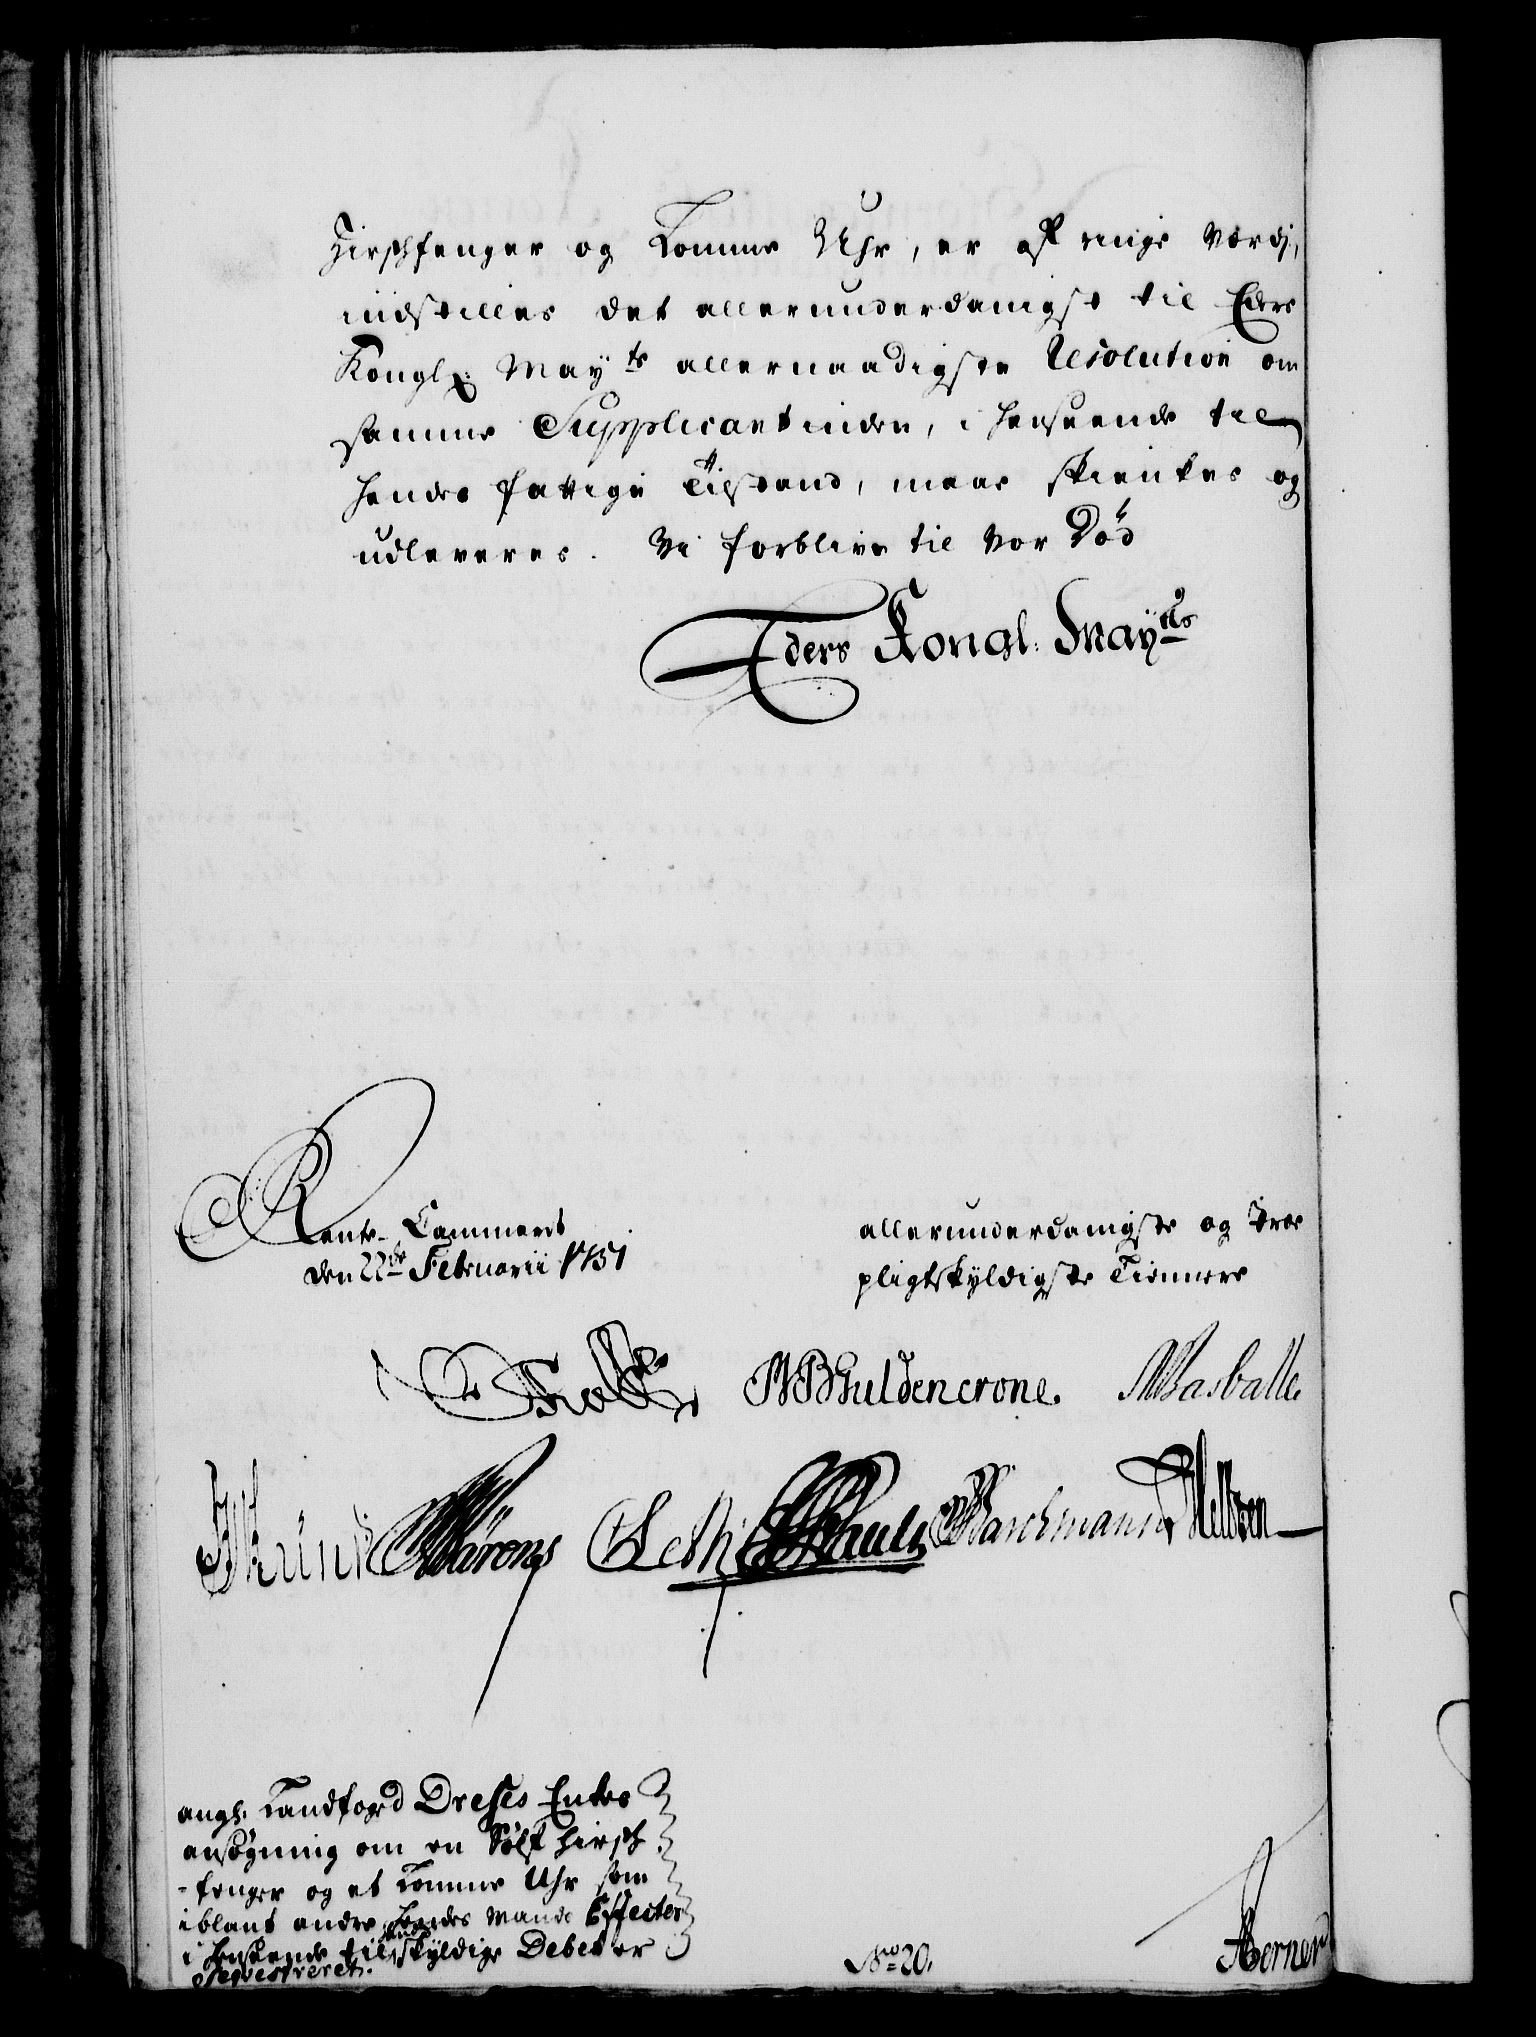 Hirschfenger og Lomme Uhr, er af ringe værdj,
indstilles det allerunderdanigst til Eders
Kongl: May.ts allernaadigste Resolution om
samme Supplicantinden, i henseende til
hendes fattige Tilstand, maae skienkes og
udleveres. Vi forblive til vor Død
Eders Kongl: May.ts
Rente-Cammeret
den 22de Februarii 1731
allerunderdanigste og troe
pligtskyldigste Tiennere
Güldencrone.
Basballe.
angl. Landfoged Dreses Enkes
ansøgning om en Sølf Hirsch-
-fenger og et Lomme Uhr som
iblant andre hendes Mands Effecter
i henseende til skyldige Debet er
Seqvestreret.
No 20.
Aerner